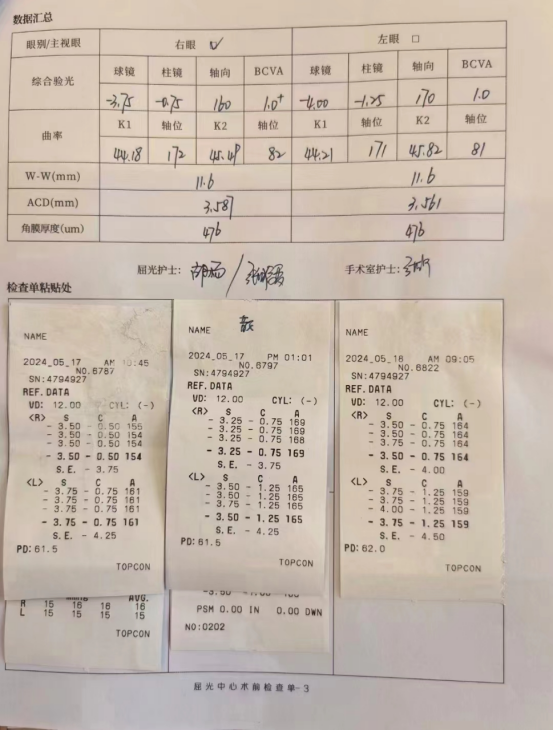 数据汇总
眼别/主视眼 右眼 ✓ 左眼 □
综合验光 球镜 柱镜 轴向 BCVA 球镜 柱镜 轴向 BCVA
-3.75 -0.75 160 1.0+ -4.00 -1.25 170 1.0
曲率 K1 轴位 K2 轴位 K1 轴位 K2 轴位
44.18 172 45.49 82 44.21 171 45.82 81
W-W(mm) 11.6 11.6
ACD(mm) 3.587 3.561
角膜厚度(um) 476 476
屈光护士: 手术室护士:
检查单粘贴处
NAME
2024_05_17 AM 10:45
NO.6787
SN:4794927
REF.DATA
VD: 12.00 CYL: (-)
<R> S C A
- 3.50 - 0.50 155
- 3.50 - 0.50 154
- 3.50 - 0.50 154
- 3.50 - 0.50 154
S.E. - 3.75
<L> S C A
- 3.75 - 0.75 161
- 3.75 - 0.75 161
- 3.75 - 0.75 161
- 3.75 - 0.75 161
S.E. - 4.25
PD:61.5
TOPCON
AVG.
R 15 16 16 16
L 15 15 15 15
TOPCON
NAME
2024_05_17 PM 01:01
NO.6797
SN:4794927
REF.DATA
VD: 12.00 CYL: (-)
<R> S C A
- 3.25 - 0.75 169
- 3.25 - 0.75 169
- 3.25 - 0.75 168
- 3.25 - 0.75 169
S.E. - 3.75
<L> S C A
- 3.50 - 1.25 165
- 3.50 - 1.25 165
- 3.50 - 1.25 165
- 3.50 - 1.25 165
S.E. - 4.25
PD:61.5
TOPCON
PSM 0.00 IN 0.00 DWN
NO:0202
NAME
2024_05_18 AM 09:05
NO.6822
SN:4794927
REF.DATA
VD: 12.00 CYL: (-)
<R> S C A
- 3.50 - 0.75 164
- 3.50 - 0.75 164
- 3.50 - 0.75 164
- 3.50 - 0.75 164
S.E. - 4.00
<L> S C A
- 3.75 - 1.25 159
- 3.75 - 1.25 159
- 4.00 - 1.25 159
- 3.75 - 1.25 159
S.E. - 4.50
PD: 62.0
TOPCON
屈光中心术前检查单-3